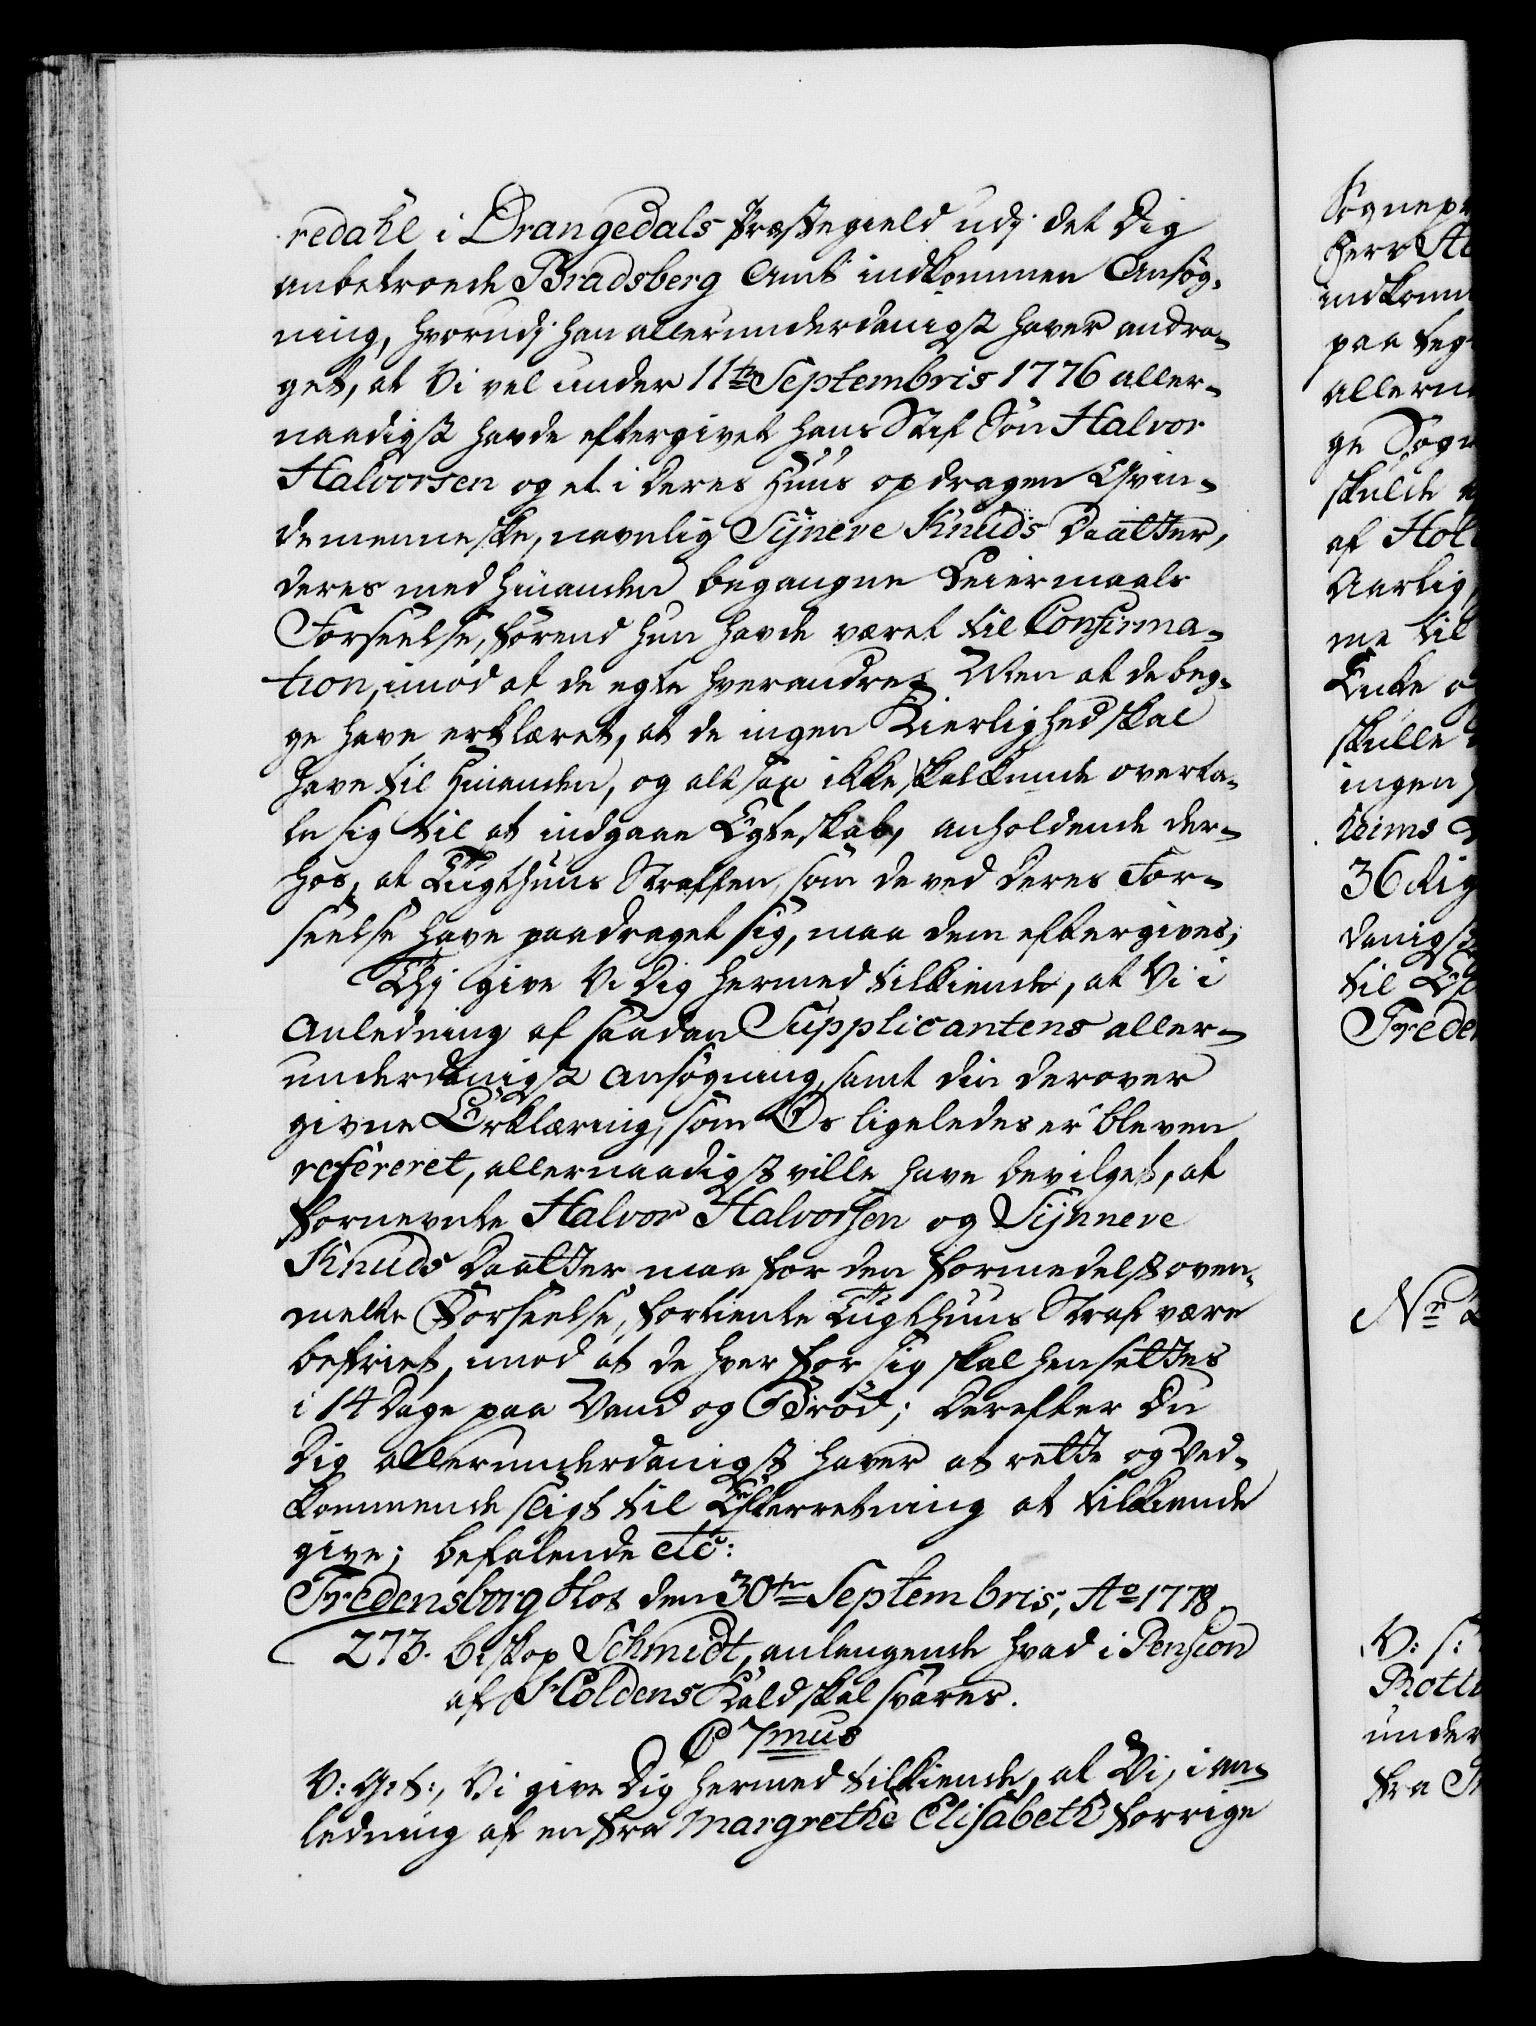 redahl i Drangedals Præstegield udj det Dig
anbetroede Bradsberg Amt indkommen Ansøg-
ning, hvorudj han allerunderdanigst haver andra-
get, at Vi vel under 11te Septembris 1776 aller-
naadigst havde eftergivet hans Stif Søn Halvor
Halvorsen og et i deres Huus opdragen Qvin-
demenneske, navnlig Sÿneve Knuds Daatter,
deres med hinanden begangne Leiermaals
Forseelse, førend hun havde været til Confirma-
tion, imod at de egte hverandre; Men at de beg-
ge have erklæret, at de ingen Kierlighed skal
have til hinanden, og altsaa ikke skal kunde overta-
le sig til at indgaae Egteskab, anholdende der-
hos, at Tugthuus Straffen, som de ved deres For-
seelse have paadraget sig, maa dem eftergives;
Thj give Vi Dig hermed tilkiende, at Vi i
Anledning af saadan Supplicantens aller-
underdanigst Ansøgning, samt din derover
givne Erklæring, som Os ligeledes er bleven
refereret, allernaadigst ville have bevilget, at
fornevnte Halvor Halvorsen og Sÿnneve
Knuds Daatter maa for den formedelst oven-
melte Forseelse, fortiente Tugthuus Straf være
befriet, imod at de hver for sig skal hensettes
i 14 Dage paa Vand og Brød; Derefter Du
Dig allerunderdanigst haver at rette og Ved-
kommende sligt til Efterretning at tilkiende
give; befalende etc:
Fredensborg Slot den 30te Septembris, Ao 1778
273. Biskop Schmidt, anlangende hvad i Pension
af Holdens Kald skal svares.
C 7mus
V: G: T:, Vi give Dig hermed tilkiende, at Vi, i an-
ledning af en fra Margrethe Elisabeth forrige